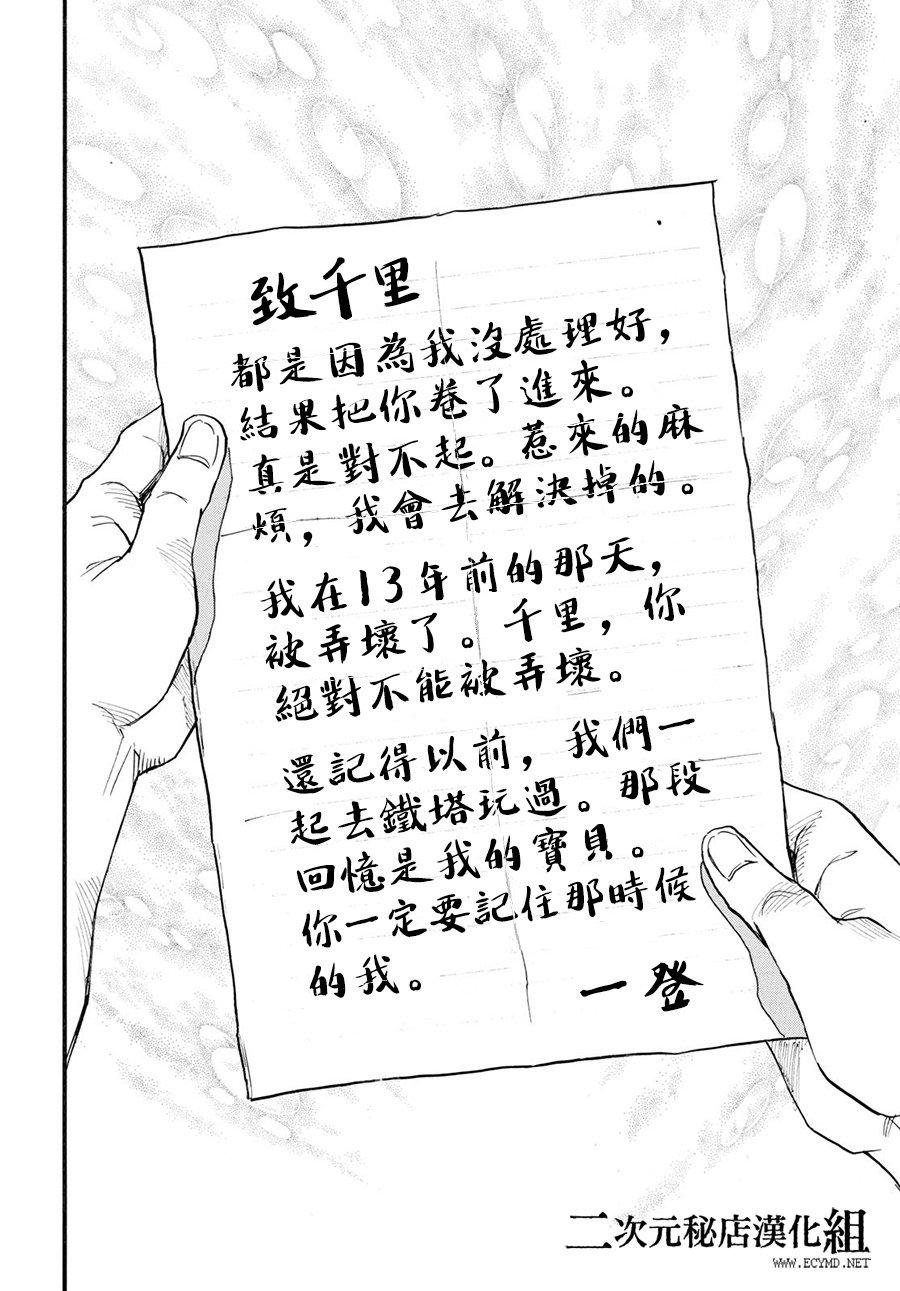 致千里
都是因為我沒處理好，
結果把你卷了進來。
真是對不起。惹來的麻
煩，我會去解決掉的。
我在13年前的那天，
被弄壞了。千里，你
絕對不能被弄壞。
還記得以前，我們一
起去鐵塔玩過。那段
回憶是我的寶貝。
你一定要記住那時候
的我。
一登
二次元秘店漢化組
WWW.ECYMD.NET